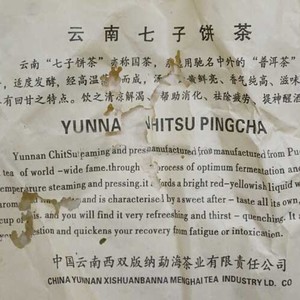 云南七子饼茶
云南“七子饼茶”亦称圆茶，用驰名中外的“普洱茶”
适度发酵，经高温蒸 而成，汤 黄鲜亮、香气纯高、滋味
有回甘之特点。饮之清凉解渴 帮助消化、祛除疲劳、提神醒酒
YUNNA CHITSU PINGCHA
Yunnan ChitSu eaming and pres manufactured from manufactured from Pu
tea of world-wide fame. through process of optimum fermentation and
temperature steaming and pressing. it ds a bright red-yellowish liquid w
aroma and is characterised by a sweet after-taste all its own
cup of is. and you will find it very refreeshing and thirst-quenching. It a
tion and quickens your recovery from fatigue or intoxication.
中国云南西双版纳勐海茶业有限责任公司
CHINA YUNNAN XISHUANBANNA MENGHAI TEA INDUSTRY LD. CO